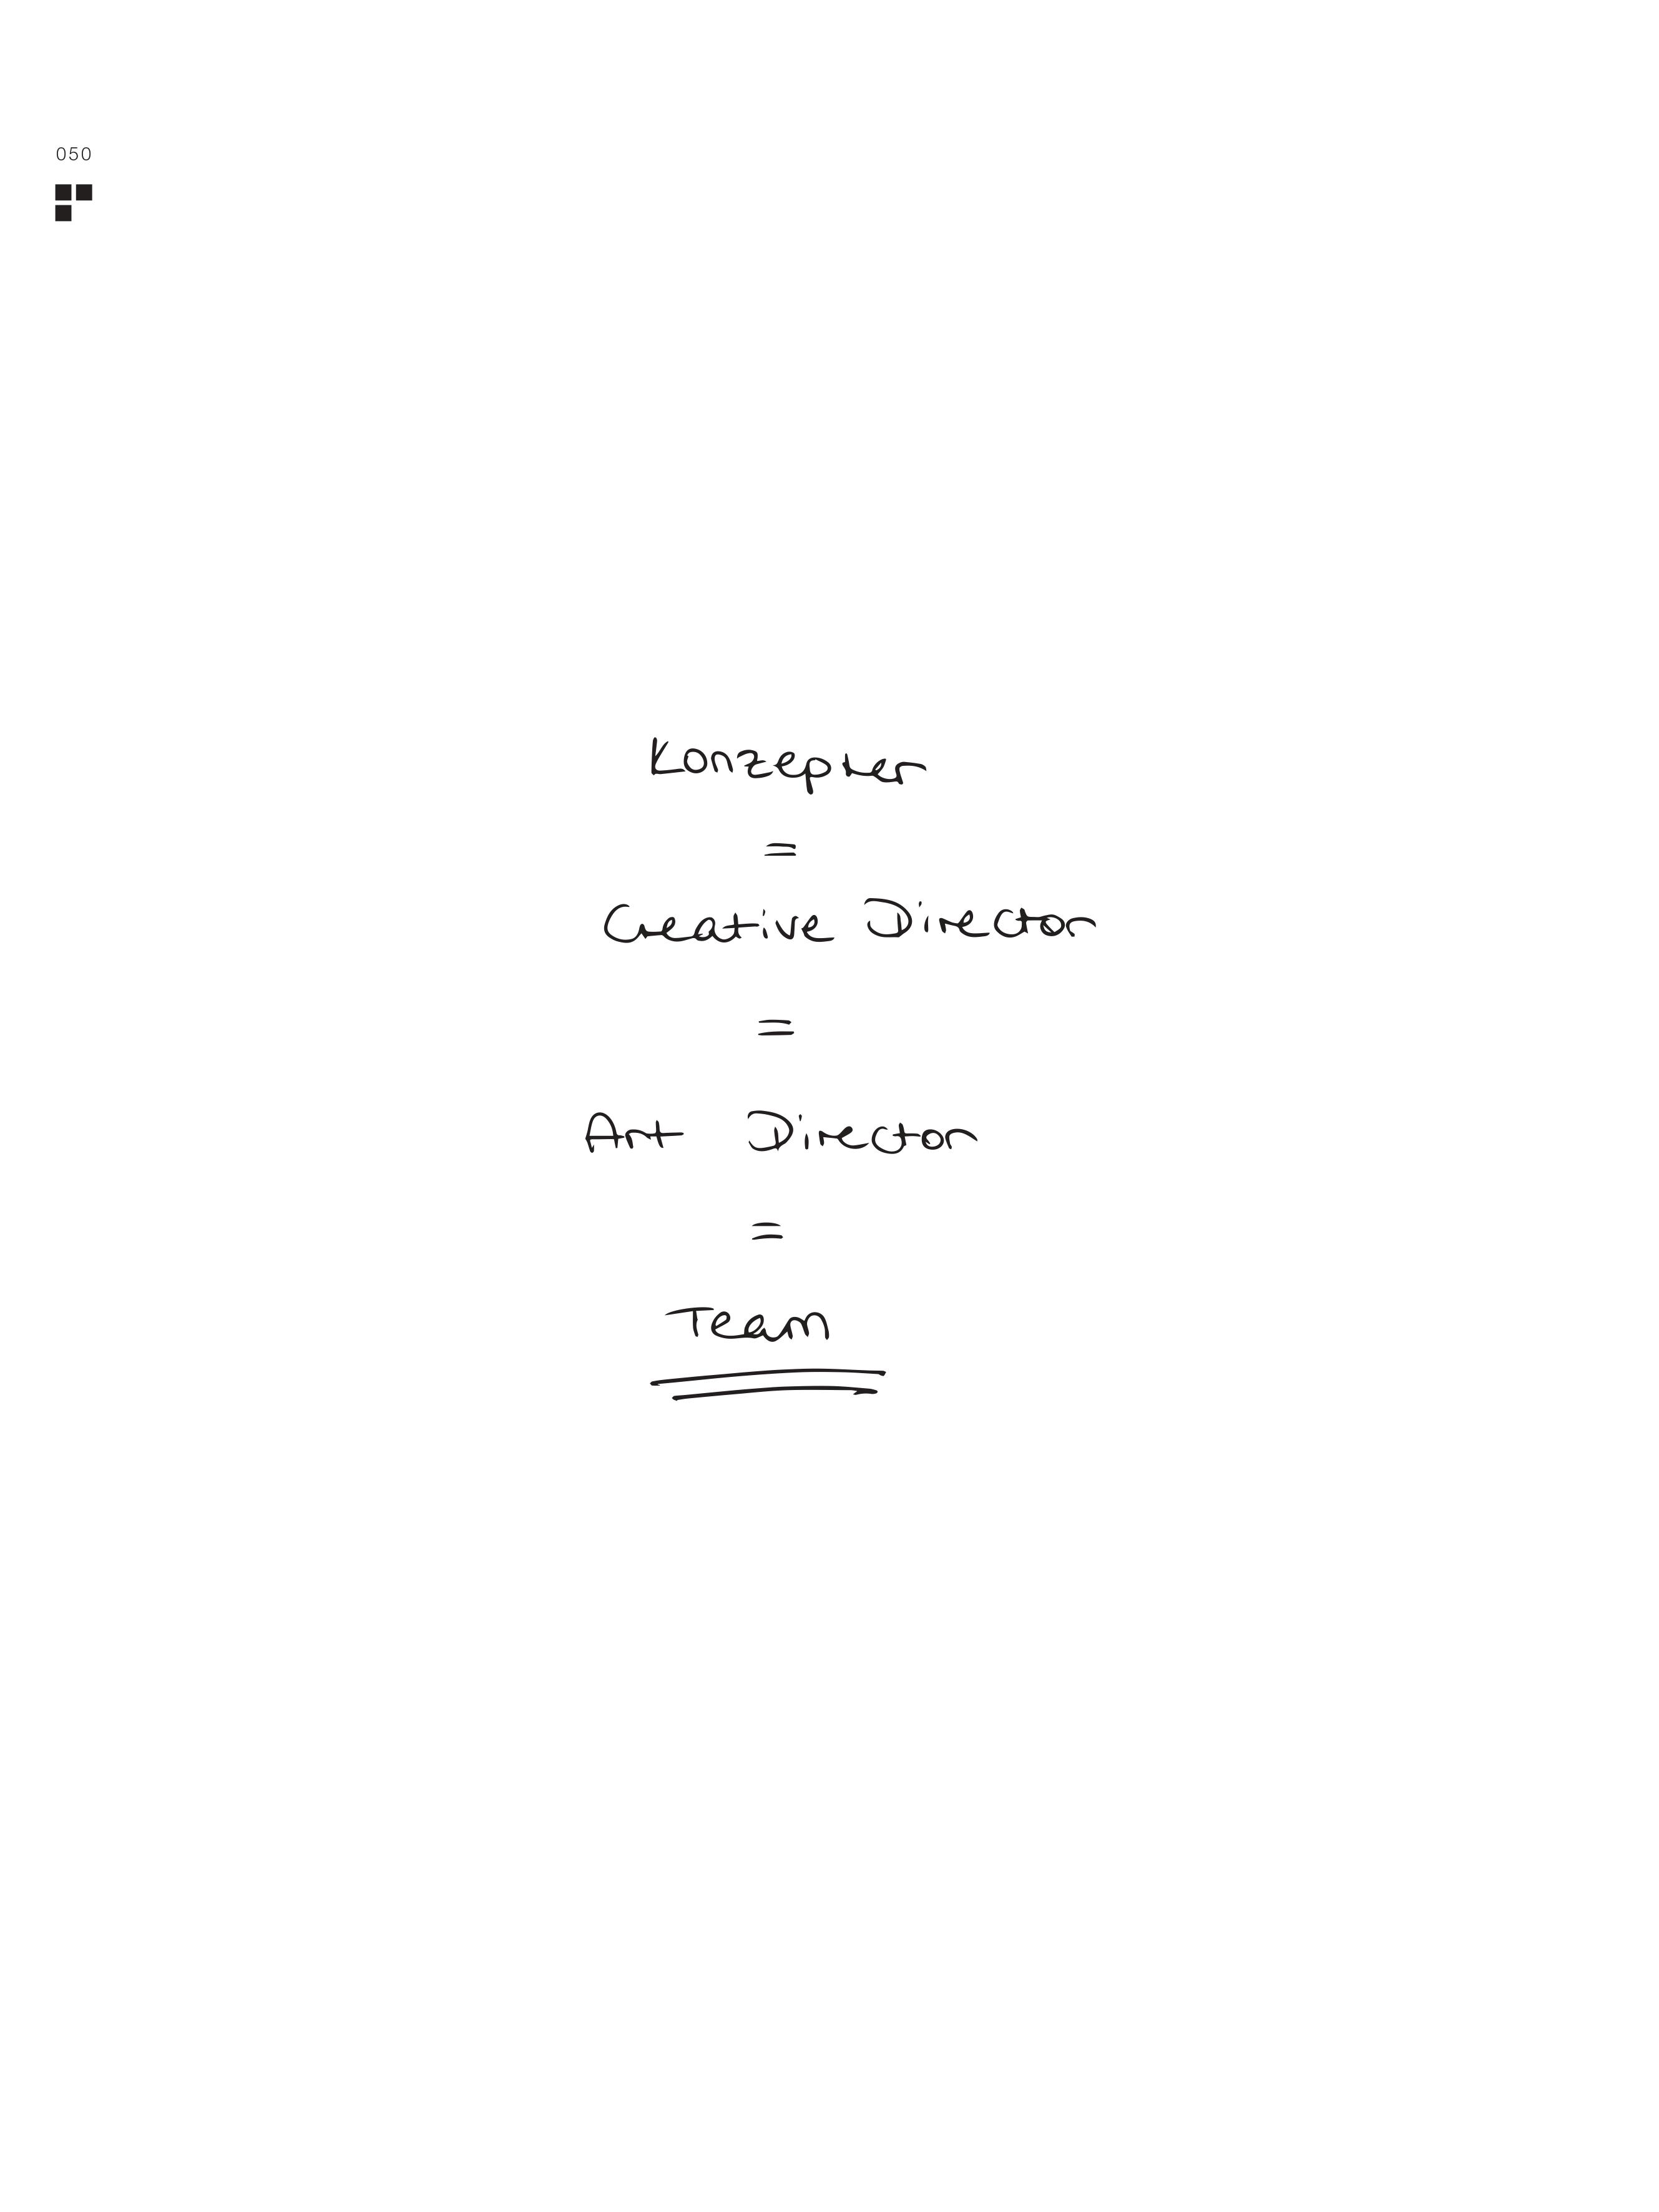 050
Konzepter
=
Creative Director
=
Art Director
=
Team